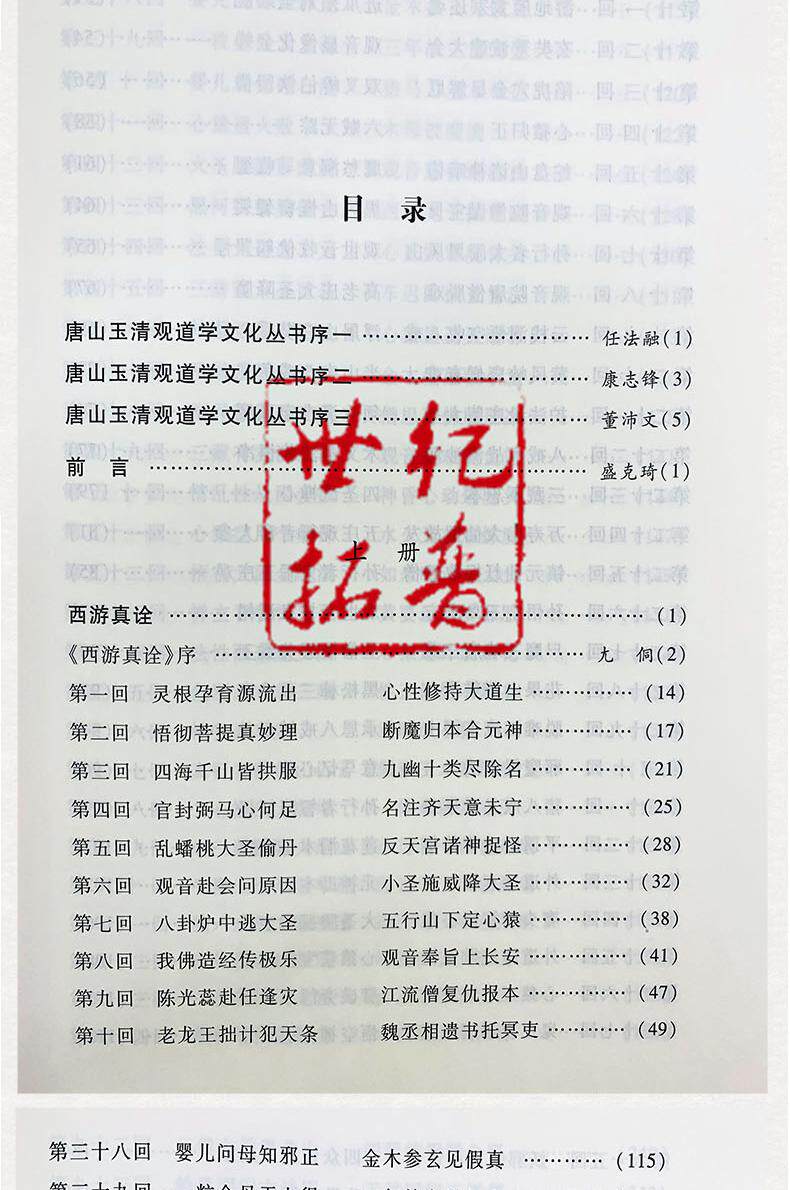 目 录
唐山玉清观道学文化丛书序一 …………………………… 任法融(1)
唐山玉清观道学文化丛书序二 …………………………… 康志锋(3)
唐山玉清观道学文化丛书序三 …………………………… 董沛文(5)
前 言 …………………………………………………… 盛克琦(1)
世纪
拓普
上 册
西游真诠 …………………………………………………… (1)
《西游真诠》序 ………………………………………… 尤 侗(2)
第一回 灵根孕育源流出 心性修持大道生 ………… (14)
第二回 悟彻菩提真妙理 断魔归本合元神 ………… (17)
第三回 四海千山皆拱服 九幽十类尽除名 ………… (21)
第四回 官封弼马心何足 名注齐天意未宁 ………… (25)
第五回 乱蟠桃大圣偷丹 反天宫诸神捉怪 ………… (28)
第六回 观音赴会问原因 小圣施威降大圣 ………… (32)
第七回 八卦炉中逃大圣 五行山下定心猿 ………… (38)
第八回 我佛造经传极乐 观音奉旨上长安 ………… (41)
第九回 陈光蕊赴任逢灾 江流僧复仇报本 ………… (47)
第十回 老龙王拙计犯天条 魏丞相遗书托冥吏 ………… (49)
第三十八回 婴儿问母知邪正 金木参玄见假真 ………… (115)